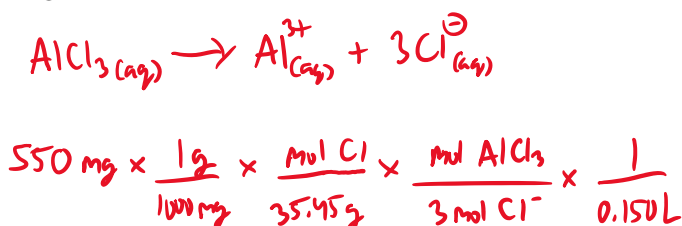 AlCl₃(aq) → Al³⁺(aq) + 3Cl⊖(aq)
550 mg × 1g/1000mg × mol Cl/35.45g × mol AlCl₃/3 mol Cl⁻ × 1/0.150L